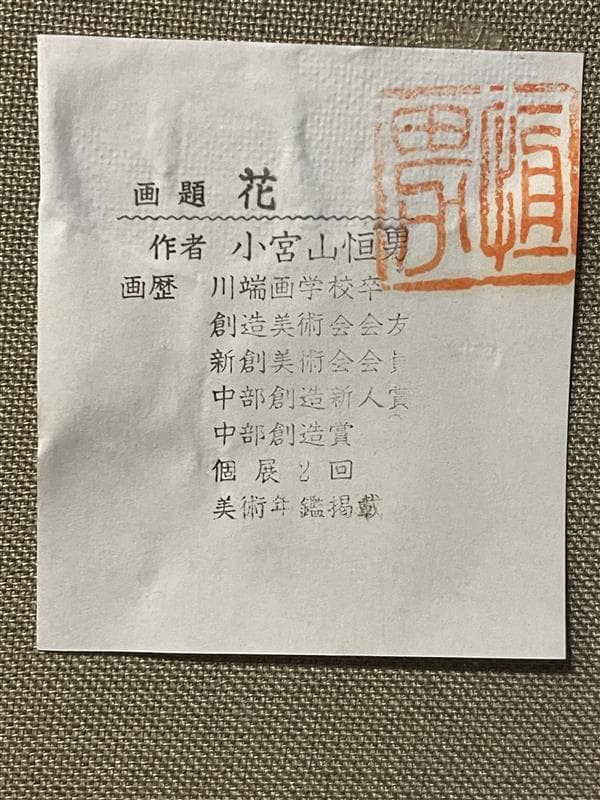 画題 花
作者 小宮山恒男
画歴 川端画学校卒
創造美術会会友
新創美術会会員
中部創造新人賞
中部創造賞
個展2回
美術年鑑掲載
恒男